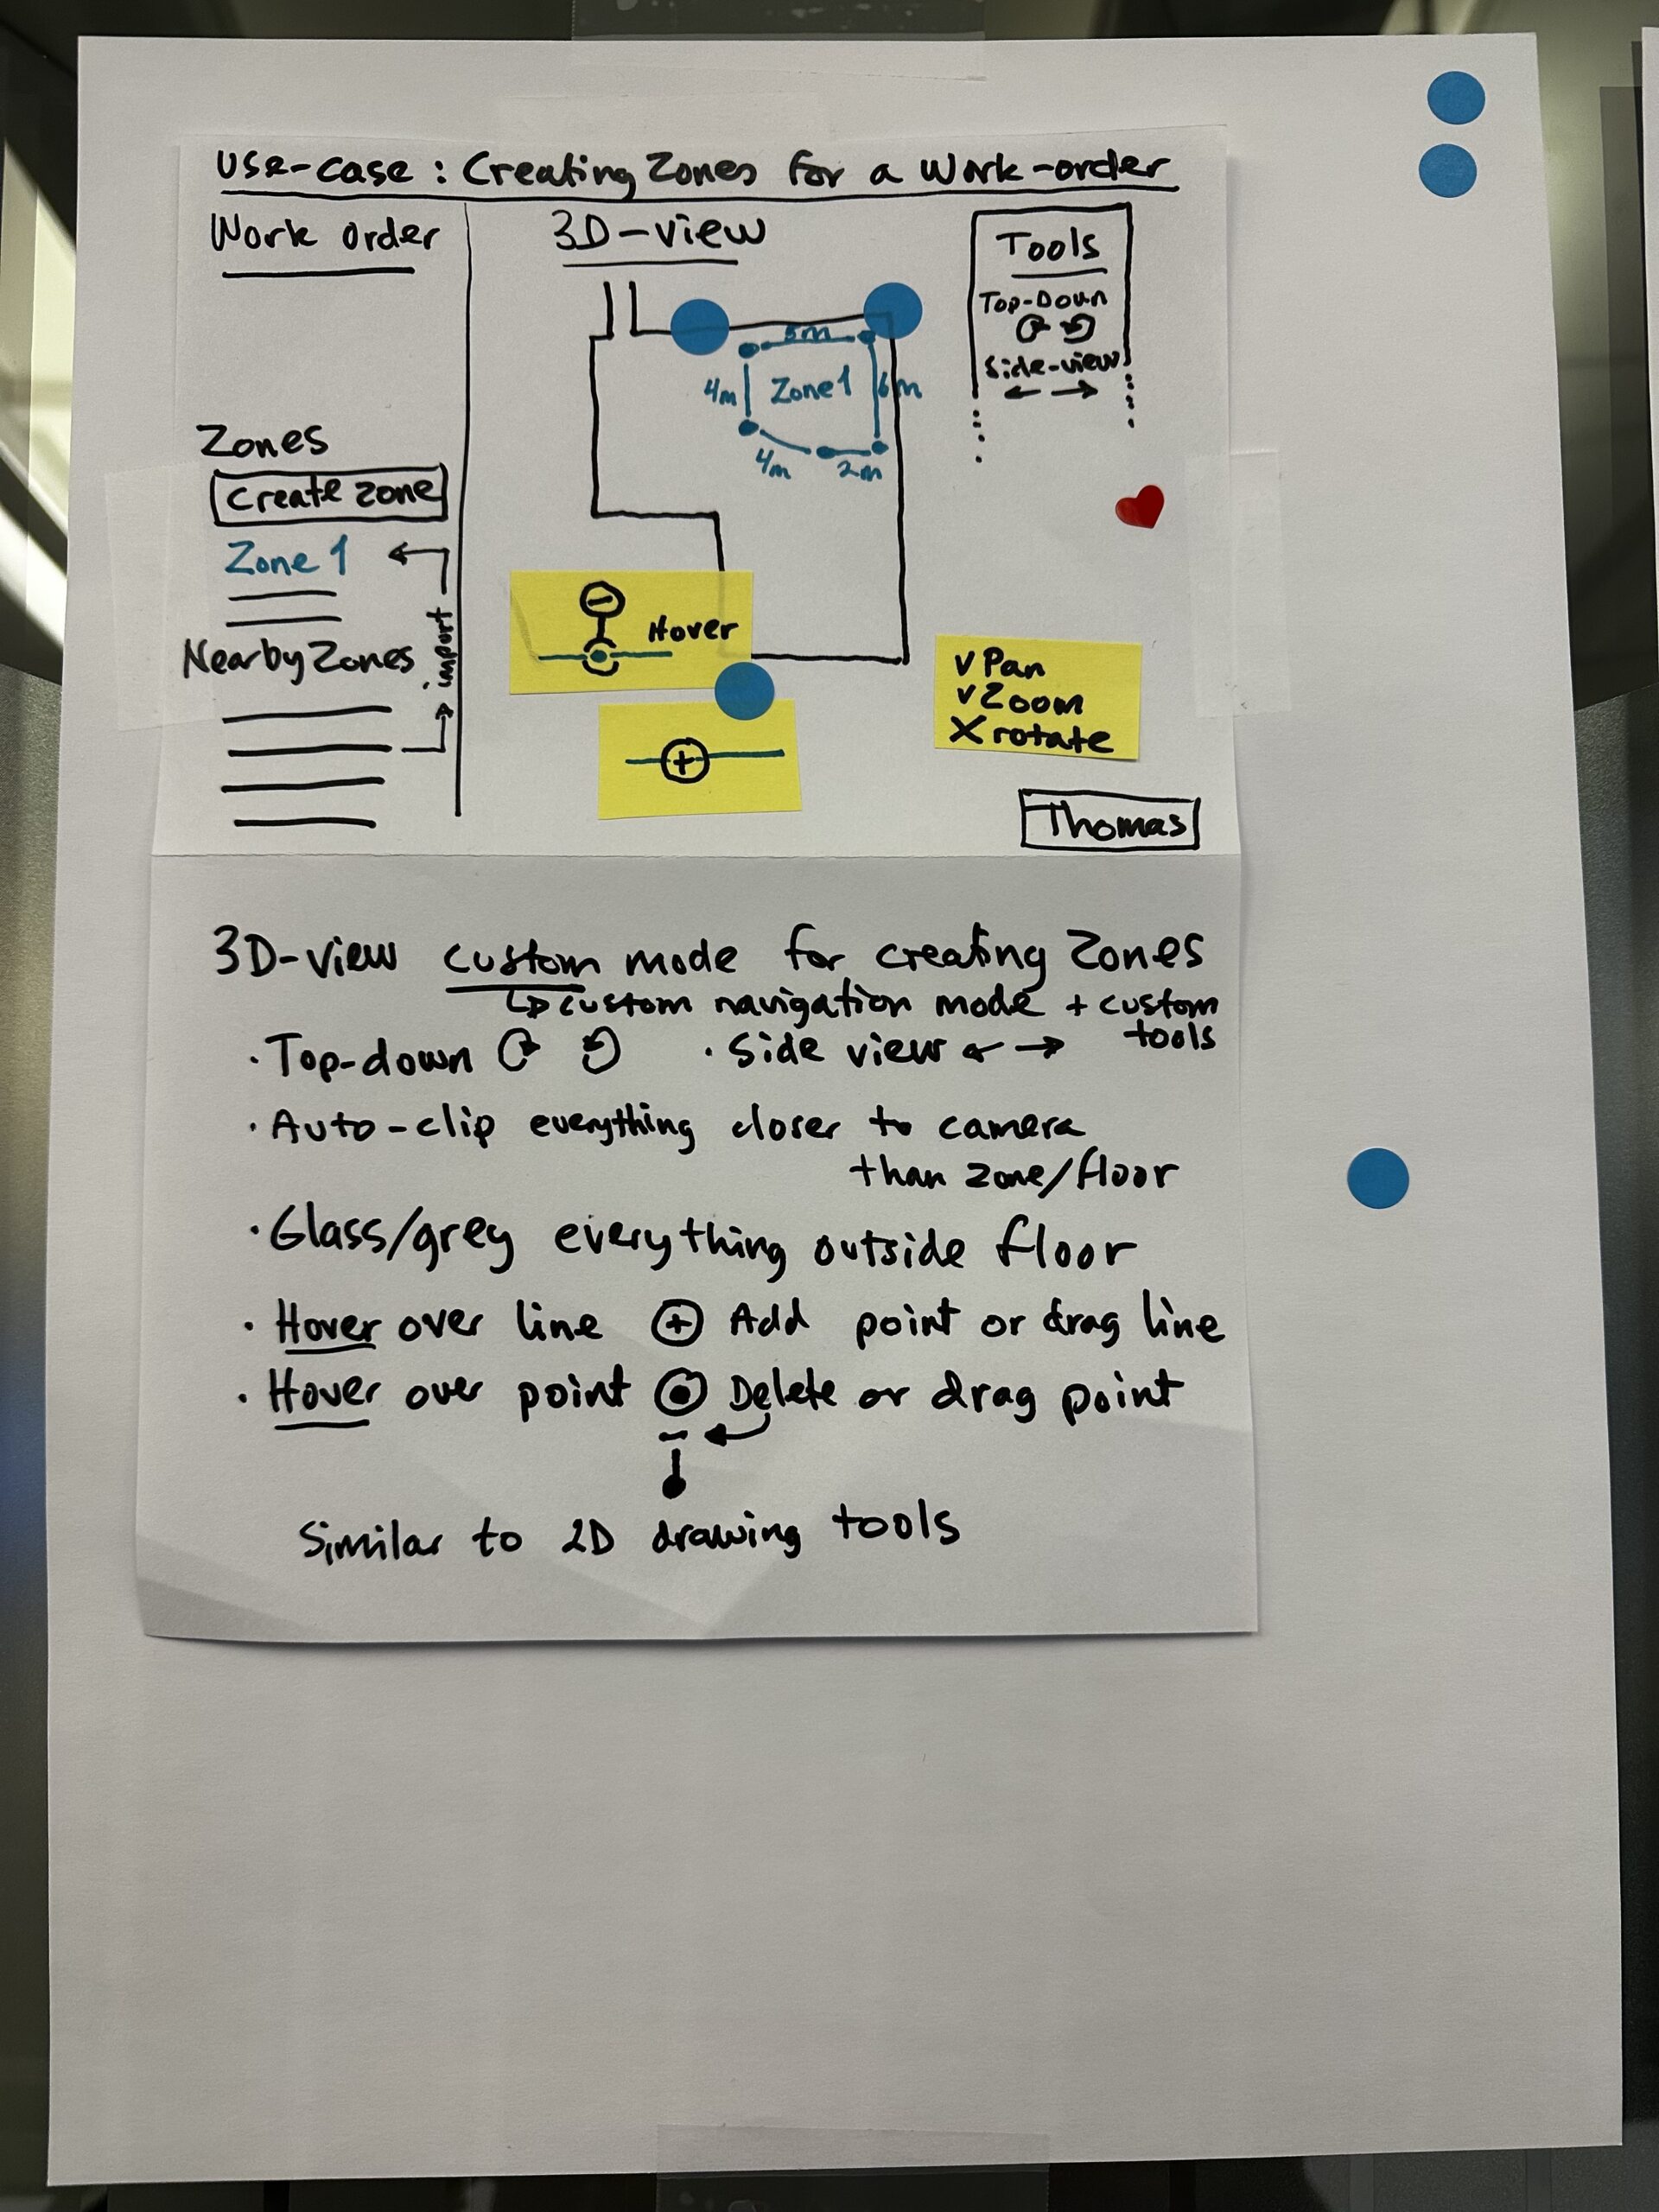 Use-case : Creating Zones for a Work-order
Work order
Zones
Create zone
Zone 1
Nearby Zones
import
3D-view
5m
4m
Zone 1
6m
4m
2m
Hover
Tools
Top-Down
Side-view
v Pan
v Zoom
X rotate
Thomas
3D-view custom mode for creating Zones
↳ custom navigation mode + custom
tools
· Top-down
· Side view ← →
· Auto-clip everything closer to camera
than zone/floor
· Glass/grey everything outside floor
· Hover over line ⊕ Add point or drag line
· Hover over point ⊙ Delete or drag point
Similar to 2D drawing tools